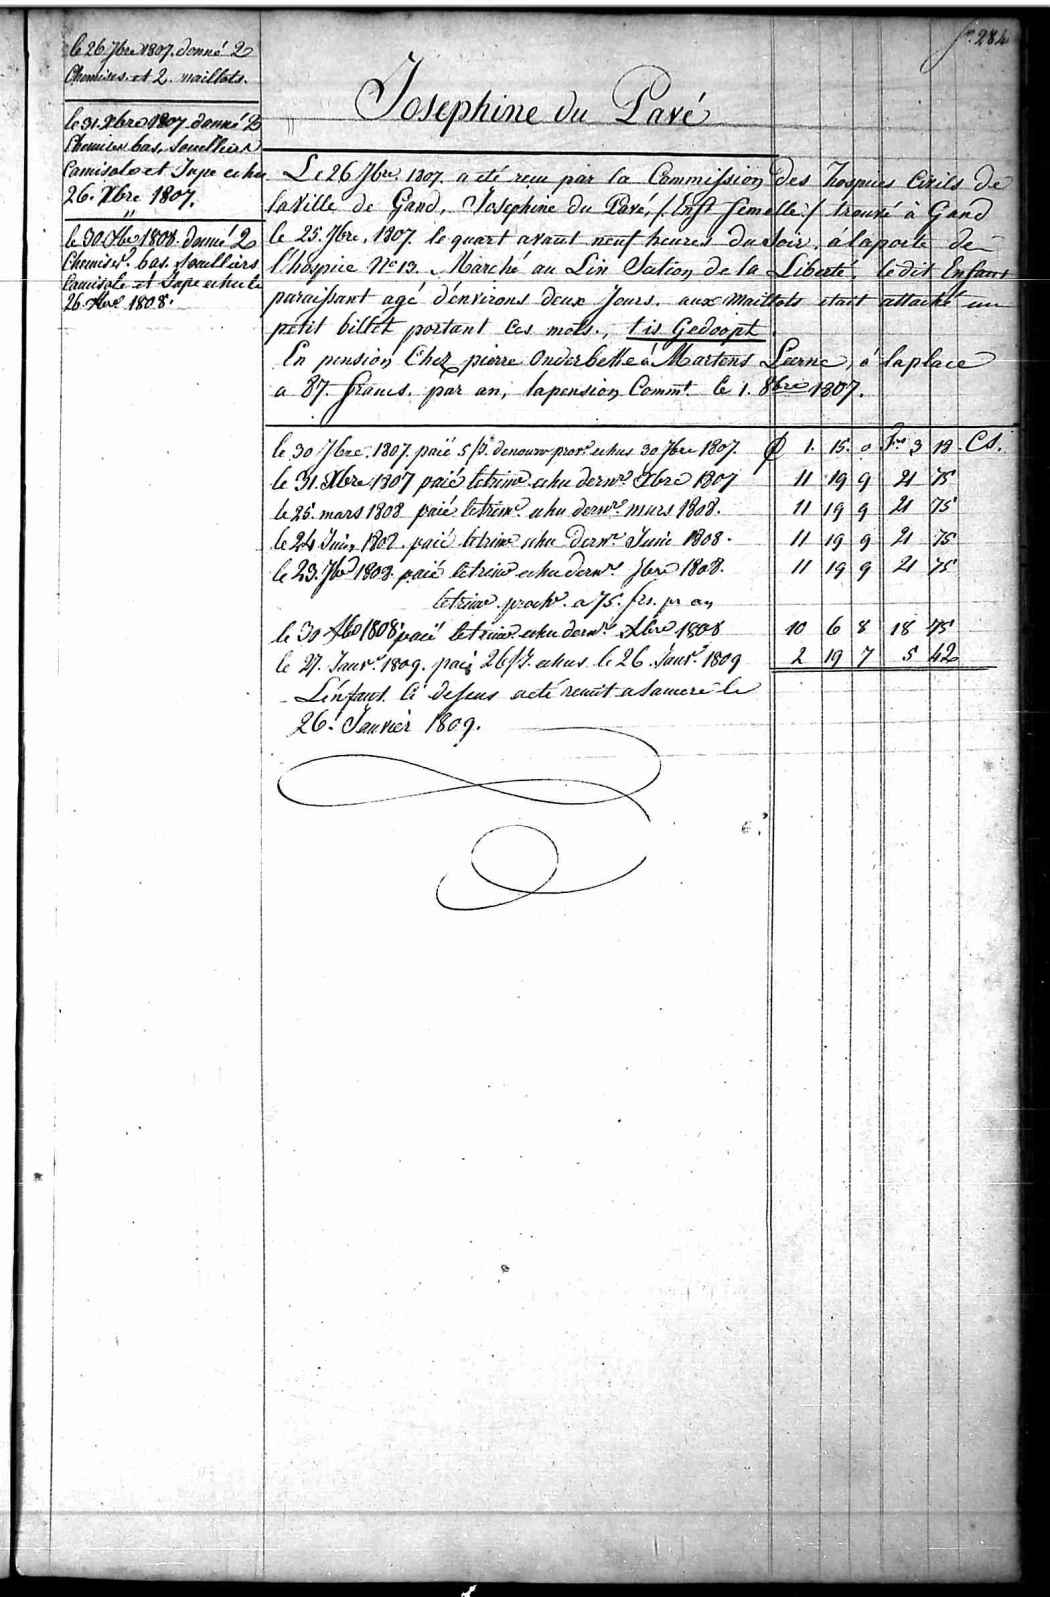 fo. 284
le 26 7bre 1807. donné 2
Chemises et 2 maillots.
le 31. Xbre 1807 donné 2
Chemises bas, soulliers
Camisole et Jupe echu
26. Xbre 1807.
le 30. Xbre 1808. donné 2
Chemises. bas. soulliers
Camisole et Jupe echu le
26 Xbre 1808.
Josephine du Pavé
Le 26 7bre. 1807. a eté reçu par la Commission des Hospices Civils de
la Ville de Gand, Josephine du Pavé, /: Enft femelle :/ trouvé à Gand
le 25. 7bre. 1807. le quart avant neuf heures du Soir. á la porte de
l'hospice No 13. Marché au Lin Section de la Liberté, le dit Enfant
paraissant agé d'environs deux Jours. aux maillots etait attaché un
petit billet portant ces mots., tis Gedoopt.
En pension Chez pierre Onderbette á Martens Leerne, á la place
a 87. francs. par an, la pension Commt. le 1. 8bre 1807.
le 30 7bre. 1807. paié 5 jrs. denourr. prov. echus 30 7bre 1807. 1. 15. 0 frs 3 18 Cs.
le 31. Xbre 1807 paié le trime. echu dernr. Xbre 1807 11 19 9 21 75
le 25. mars 1808 paié le trime. echu dernr. mars 1808. 11 19 9 21 75
le 24 Juin 1808. paié le trime echu dernr. Juin 1808. 11 19 9 21 75
le 23. 7bre 1808. paié le trime echu dernr. 7bre 1808. 11 19 9 21 75
le trime. proche. a 75. frs. pr an
le 30 Xbre 1808. paié le trime. echu dernr. Xbre 1808 10 6 8 18 75
le 27. Janvr. 1809. paié 26 jrs. echus le 26. Janvr. 1809 2 19 7 5 42
L'énfant Ci dessus a eté remit a sa mere le
26. Janvier 1809.